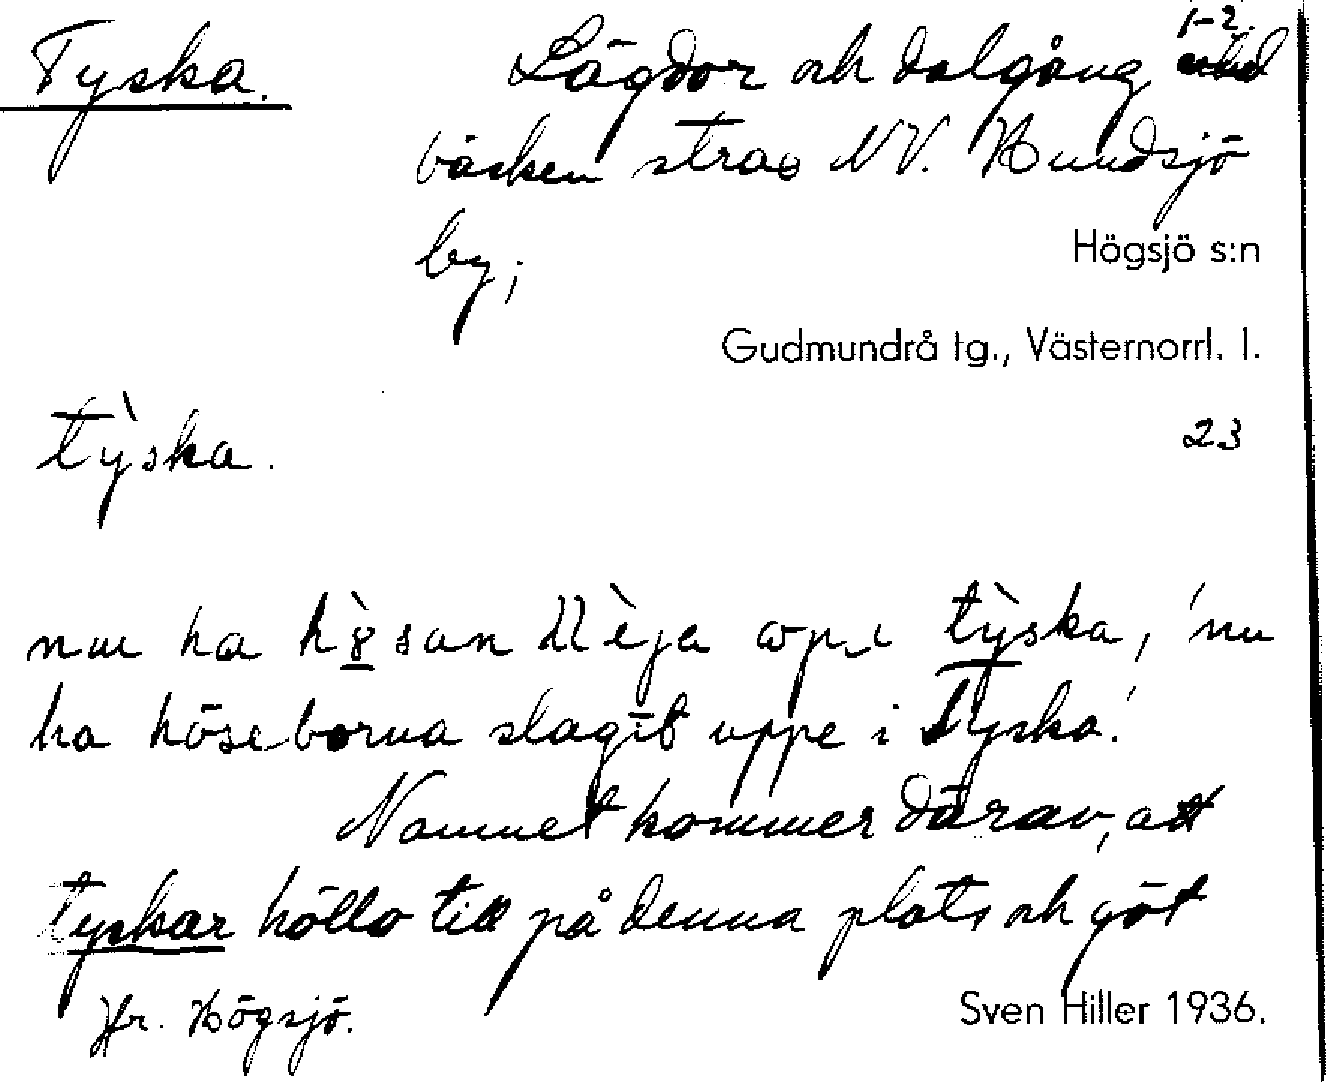 Tyska.
1-2.
Lägdor och dalgång vid
bäcken strax NV. Hundsjö
by;
Högsjö s:n
Gudmundrå tg., Västernorrl. l.
23
tỳska.
nuu ha tỳska, 'nu
ha höseborna slagit uppe i Tyska.'
Namnet kommer därav, att
tyskar höllo till på denna plats och göt
Jfr. Högsjö.
Sven Hiller 1936.